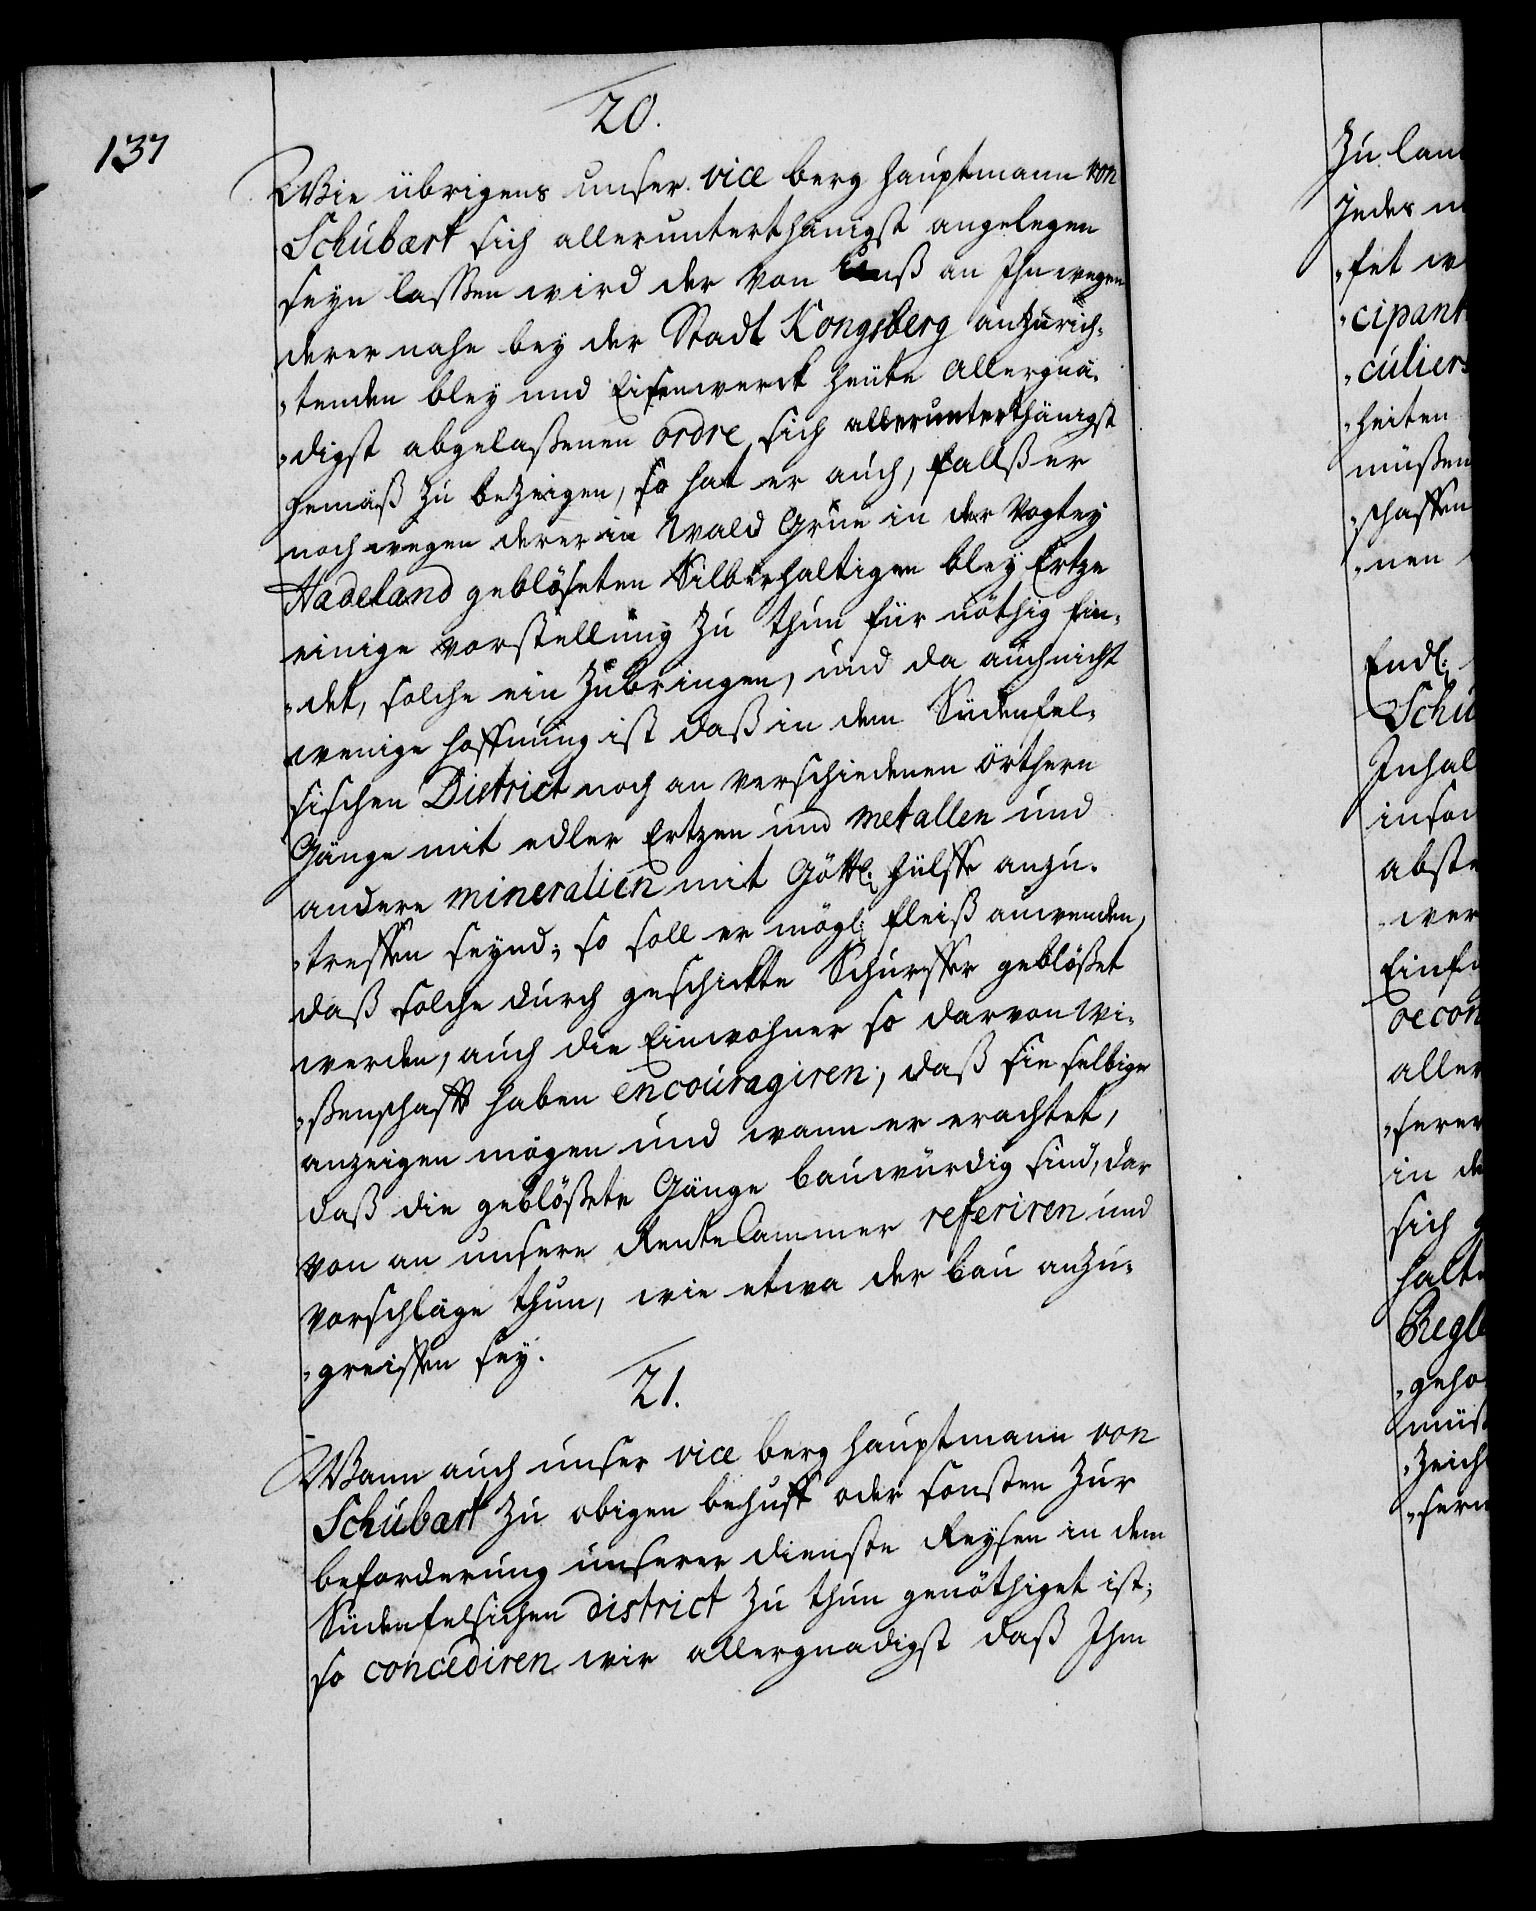 20.
137
Wie übrigens unser vice berg hauptmann von
Schubart sich allerunterthänigst angelegen
seyn lassen wird der von Unß an Ihn wegen
derer nahe bey der Stadt Kongsberg anzurich„
„tenden bley und Eisenwerck heüte allergnä„
„digst abgelaßenen ordre, sich allerunterthänigst
gemäß zu bezeigen, so hat er auch, falß er
noch wegen derer in Wald Grue in der Vogtey
Hadeland geblößeten Silberhaltigen bley Ertze
einige vorstellung zu thun für nöthig fin„
„det, solche ein zubringen, und da auch nicht
wenige hoffnung ist daß in dem Südenfel„
sischen District noch an verschiedenen örthern
Gänge mit edler Ertzen und metallen und
andere mineralien mit Göttl: hülffe anzu„
„treffen seynd; so soll er mögl: fleiß anwenden,
daß solche durch geschickte Schürffer geblößet
werden, auch die Einwohner so darvon Wi„
„ßenschafft haben encouragiren, daß sie selbige
anzeigen mögen und wann er erachtet,
daß die geblößete Gänge bauwürdig sind, dar
von an unsere Rente Cammer referiren und
vorschläge thun, wie etwa der bau anzu„
„greiffen sey.
21.
Wann auch unser vice berg hauptmann von
Schubart zu obigen behuff oder sonsten zur
beforderung unserer dienste Reysen in dem
Südenfelsichen district zu thun genöthiget ist;
so concediren wir allergnädigst daß Ihm
zu lan
jedes
„fet
„cipant
„culiers
„heiten
müßen
„schaffen
„nen
Endl:
Schu
Inhal
inson
abste
wer
Einfü
oecon
aller
„serer
in de
sich
halte
Regle
„geho
müß
„zeich
„sern